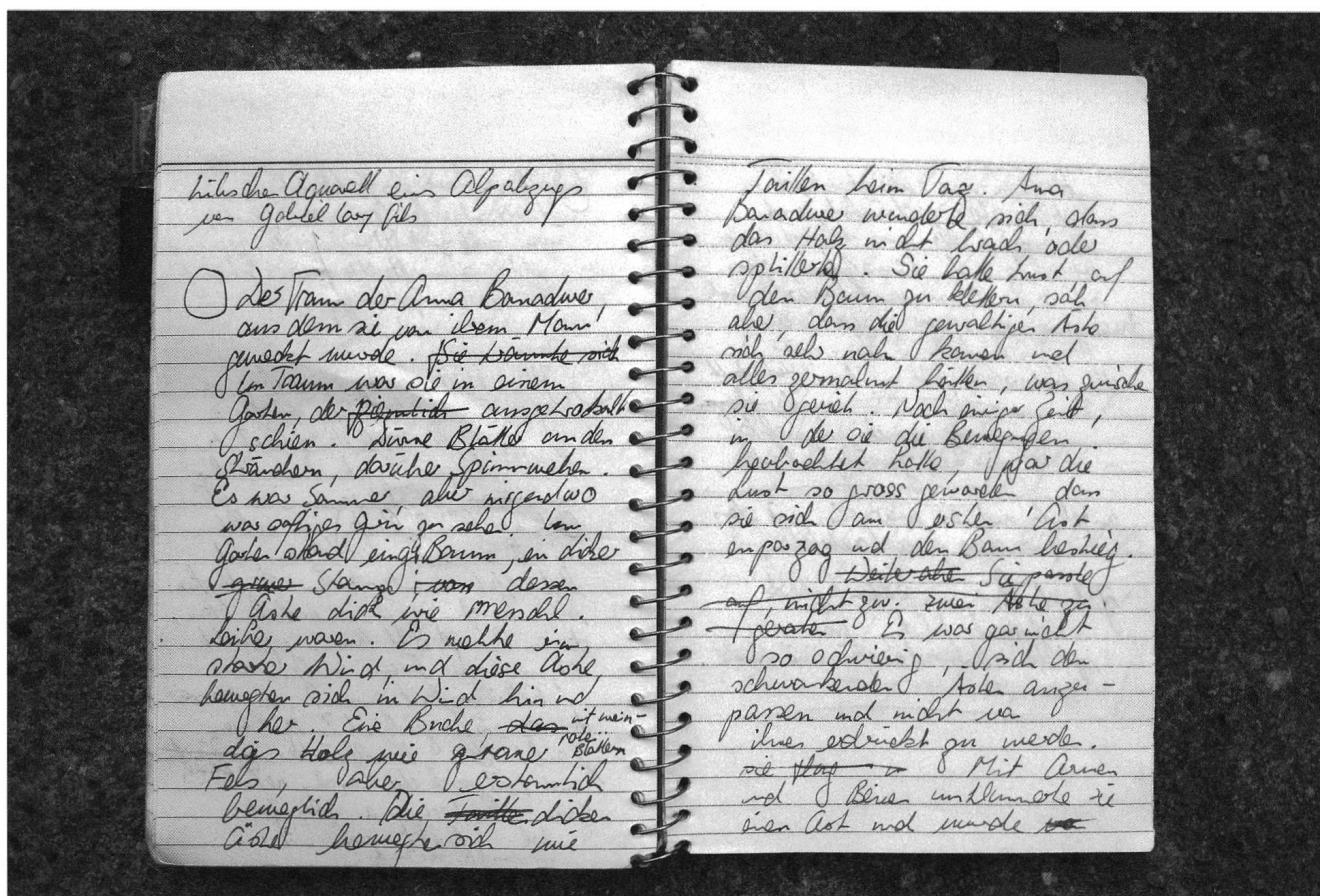 hübschen Aquarell eines Alpabzugs
von Gabriel Lory fils
Der Traum der Anna Banadurer,
aus dem sie von ihrem Mann
geweckt wurde. Sie träumte sich
Im Traum war sie in einem
Garten, der ziemlich ausgetrocknet
schien. Dürre Blätter an den
Sträuchern, darüber Spinnweben.
Es war Sommer, aber nirgendwo
war saftiges Grün zu sehen. Im
Garten stand ein Baum, ein dicker
grauer Stamm, von dessen
Äste dick wie Menschen-
leiber waren. Es wehte ein
starker Wind, und diese Äste
bewegten sich im Wind hin und
her. Eine Buche, das mit wein-
roten Blättern
das Holz wie grauer
Fels, aber erstaunlich
beweglich. Die dicken
Äste bewegten sich wie
Taillen beim Tanz. Anna
Banadurer wunderte sich, dass
das Holz nicht brach oder
splitterte. Sie hatte Lust, auf
den Baum zu klettern, sah
aber, dass die gewaltigen Äste
sich sehr nah kamen und
alles zermalmt hätten, was zwischen
sie geriet. Nach einiger Zeit,
in der sie die Bewegungen
beobachtet hatte, war die
Lust so gross geworden dass
sie sich am ersten Ast
emporzog und den Baum bestieg.
Weiter oben Sie passte
auf, nicht zw. zwei Äste zu
geraten Es war gar nicht
so schwierig, sich den
schwankenden Ästen anzu-
passen und nicht von
ihnen erdrückt zu werden.
sie Mit Armen
und Beinen umklammerte sie
einen Ast und wurde